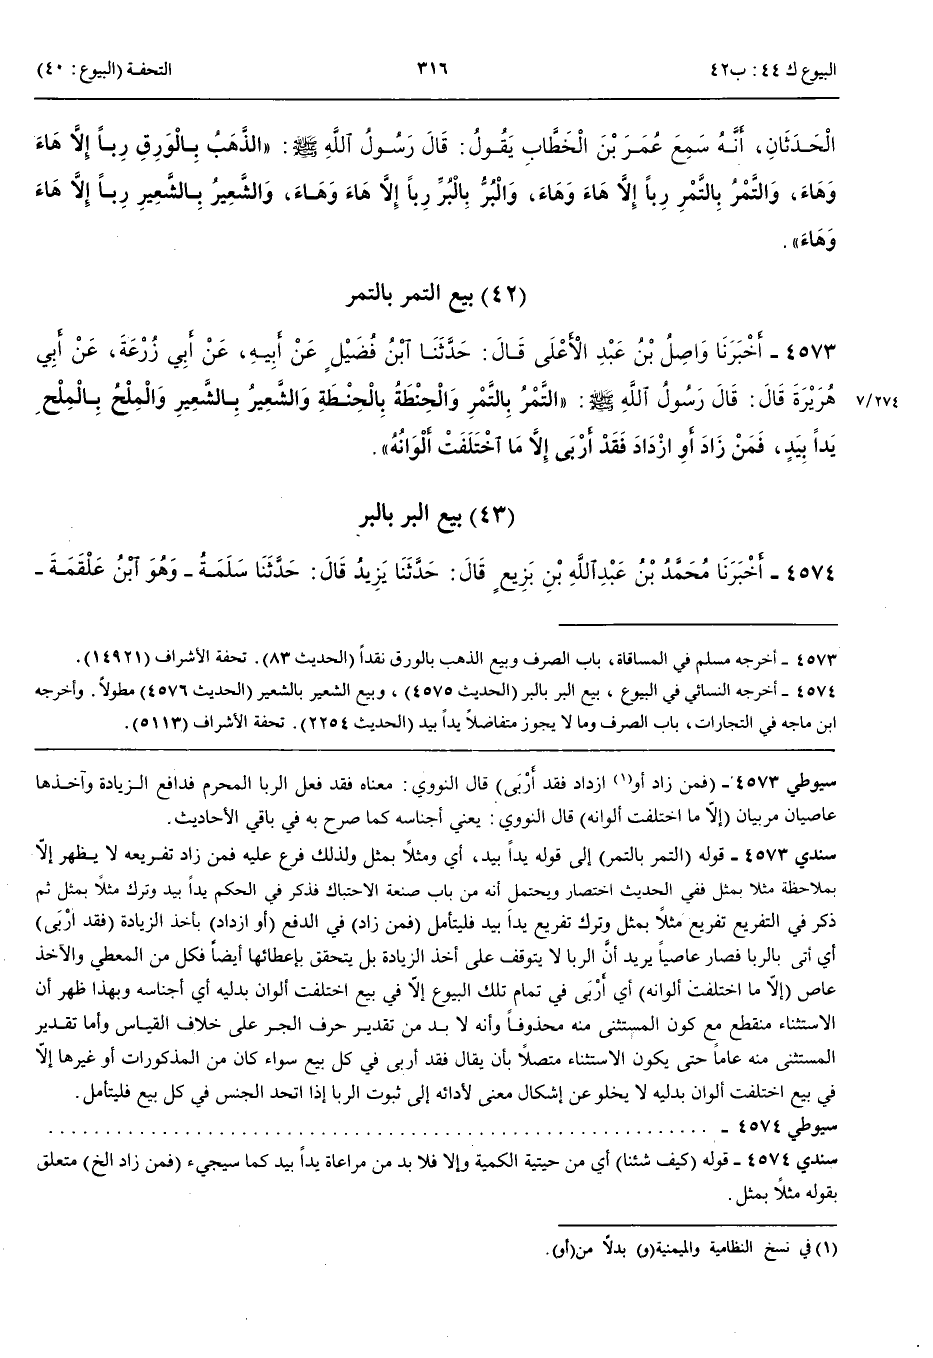 البيوع ك ٤٤: ب٤٢
٣١٦
التحفة (البيوع: ٤٠)
الْحَدَثَانِ، أَنَّهُ سَمِعَ عُمَرَ بْنَ الْخَطَّابِ يَقُولُ: قَالَ رَسُولُ ٱللَّهِ ﷺ: «الذَّهَبُ بِالْوَرِقِ رِباً إِلَّا هَاءَ
وَهَاءَ، وَالتَّمْرُ بِالتَّمْرِ رِباً إِلَّا هَاءَ وَهَاءَ، وَالْبُرُّ بِالْبُرِّ رِباً إِلَّا هَاءَ وَهَاءَ، وَالشَّعِيرُ بِالشَّعِيرِ رِباً إِلَّا هَاءَ
وَهَاءَ».
(٤٢) بيع التمر بالتمر
٤٥٧٣ ـ أَخْبَرَنَا وَاصِلُ بْنُ عَبْدِ الْأَعْلَى قَالَ: حَدَّثَنَا ٱبْنُ فُضَيْلٍ عَنْ أَبِيهِ، عَنْ أَبِي زُرْعَةَ، عَنْ أَبِي
هُرَيْرَةَ قَالَ: قَالَ رَسُولُ ٱللَّهِ ﷺ: «التَّمْرُ بِالتَّمْرِ وَالْحِنْطَةُ بِالْحِنْطَةِ وَالشَّعِيرُ بِالشَّعِيرِ وَالْمِلْحُ بِالْمِلْحِ
٧/٢٧٤
يَداً بِيَدٍ، فَمَنْ زَادَ أَوِ ازْدَادَ فَقَدْ أَرْبَى إِلَّا مَا ٱخْتَلَفَتْ أَلْوَانُهُ».
(٤٣) بيع البر بالبر
٤٥٧٤ ـ أَخْبَرَنَا مُحَمَّدُ بْنُ عَبْدِٱللَّهِ بْنِ بَزِيعٍ قَالَ: حَدَّثَنَا يَزِيدُ قَالَ: حَدَّثَنَا سَلَمَةُ ـ وَهُوَ ٱبْنُ عَلْقَمَةَ ـ
٤٥٧٣ ـ أخرجه مسلم في المساقاة، باب الصرف وبيع الذهب بالورق نقداً (الحديث ٨٣). تحفة الأشراف (١٤٩٢١).
٤٥٧٤ ـ أخرجه النسائي في البيوع، بيع البر بالبر (الحديث ٤٥٧٥)، وبيع الشعير بالشعير (الحديث ٤٥٧٦) مطولاً. وأخرجه
ابن ماجه في التجارات، باب الصرف وما لا يجوز متفاضلاً يداً بيد (الحديث ٢٢٥٤). تحفة الأشراف (٥١١٣).
سيوطي ٤٥٧٣ ـ (فمن زاد أو(١) ازداد فقد أَرْبَى) قال النووي: معناه فقد فعل الربا المحرم فدافع الزيادة وآخذها
عاصيان مربيان (إلّا ما اختلفت ألوانه) قال النووي: يعني أجناسه كما صرح به في باقي الأحاديث.
سندي ٤٥٧٣ ـ قوله (التمر بالتمر) إلى قوله يداً بيد، أي ومثلاً بمثل ولذلك فرع عليه فمن زاد تفريعه لا يظهر إلّا
بملاحظة مثلا بمثل ففي الحديث اختصار ويحتمل أنه من باب صنعة الاحتباك فذكر في الحكم يداً بيد وترك مثلاً بمثل ثم
ذكر في التفريع تفريع مثلاً بمثل وترك تفريع يداً بيد فليتأمل (فمن زاد) في الدفع (أو ازداد) بأخذ الزيادة (فقد أَرْبَى)
أي أتى بالربا فصار عاصياً يريد أنَّ الربا لا يتوقف على أخذ الزيادة بل يتحقق بإعطائها أيضاً فكل من المعطي والآخذ
عاص (إلّا ما اختلفت ألوانه) أي أَرْبَى في تمام تلك البيوع إلّا في بيع اختلفت ألوان بدليه أي أجناسه وبهذا ظهر أن
الاستثناء منقطع مع كون المستثنى منه محذوفاً وأنه لا بد من تقدير حرف الجر على خلاف القياس وأما تقدير
المستثنى منه عاماً حتى يكون الاستثناء متصلاً بأن يقال فقد أربى في كل بيع سواء كان من المذكورات أو غيرها إلّا
في بيع اختلفت ألوان بدليه لا يخلو عن إشكال معنى لأدائه إلى ثبوت الربا إذا اتحد الجنس في كل بيع فليتأمل.
سيوطي ٤٥٧٤ ـ ..................................................
سندي ٤٥٧٤ ـ قوله (كيف شئنا) أي من حيثية الكمية وإلا فلا بد من مراعاة يداً بيد كما سيجيء (فمن زاد الخ) متعلق
بقوله مثلاً بمثل.
(١) في نسخ النظامية والميمنية(و) بدلاً من(أو).